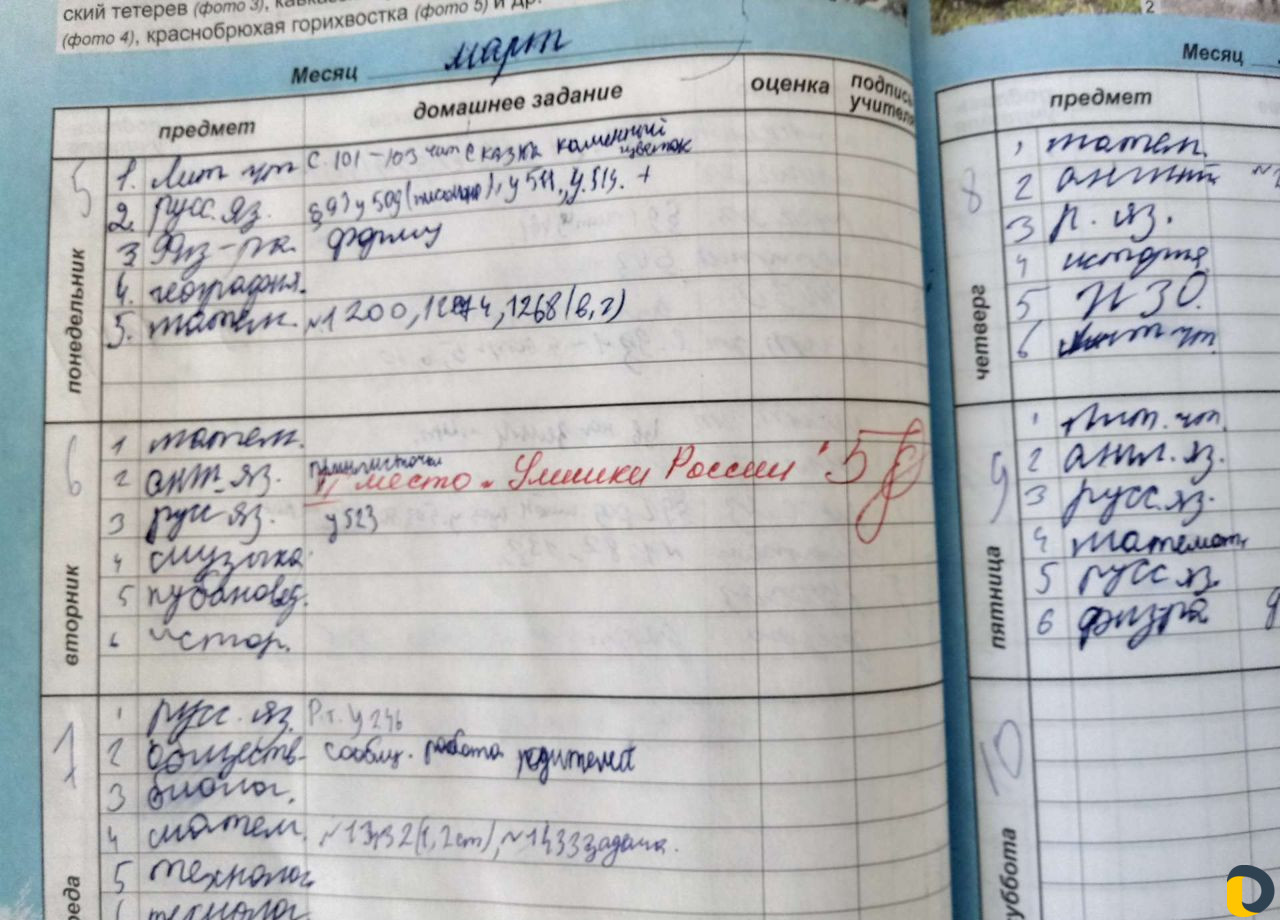 ский тетерев (фото 3), кавказс
(фото 4), краснобрюхая горихвостка (фото 5) и др.
Месяц март
предмет домашнее задание оценка подпись учителя
5 понедельник
1. Лит чт С. 101-103 чит Сказка каменный цветок
2. русс. яз. у 511, у. 513. +
3 Физ-ра. форму
4. география.
5. матем. №1200, 1268 (в, г)
6 вторник
1 матем.
2 англ. яз.
II место "Умники России" 5
3 рус яз. у 523
4 музыка
5 кубановед.
6 истор.
7 реда
1 русс. яз. Р.т. у 246
2 обществ. сообщ. работа родителей
3 биолог.
4 матем. (1, 2 ст), №1433 задача.
5 технолог
6 технолог.
2
Месяц
предмет
8 четверг
1 матем.
2 англ
3 р. яз.
4 история
5 ИЗО.
6 Лит чт.
9 пятница
1 Лит. чт.
2 англ. яз.
3 русс. яз.
4 математ
5 русс яз.
6 физра
10 суббота